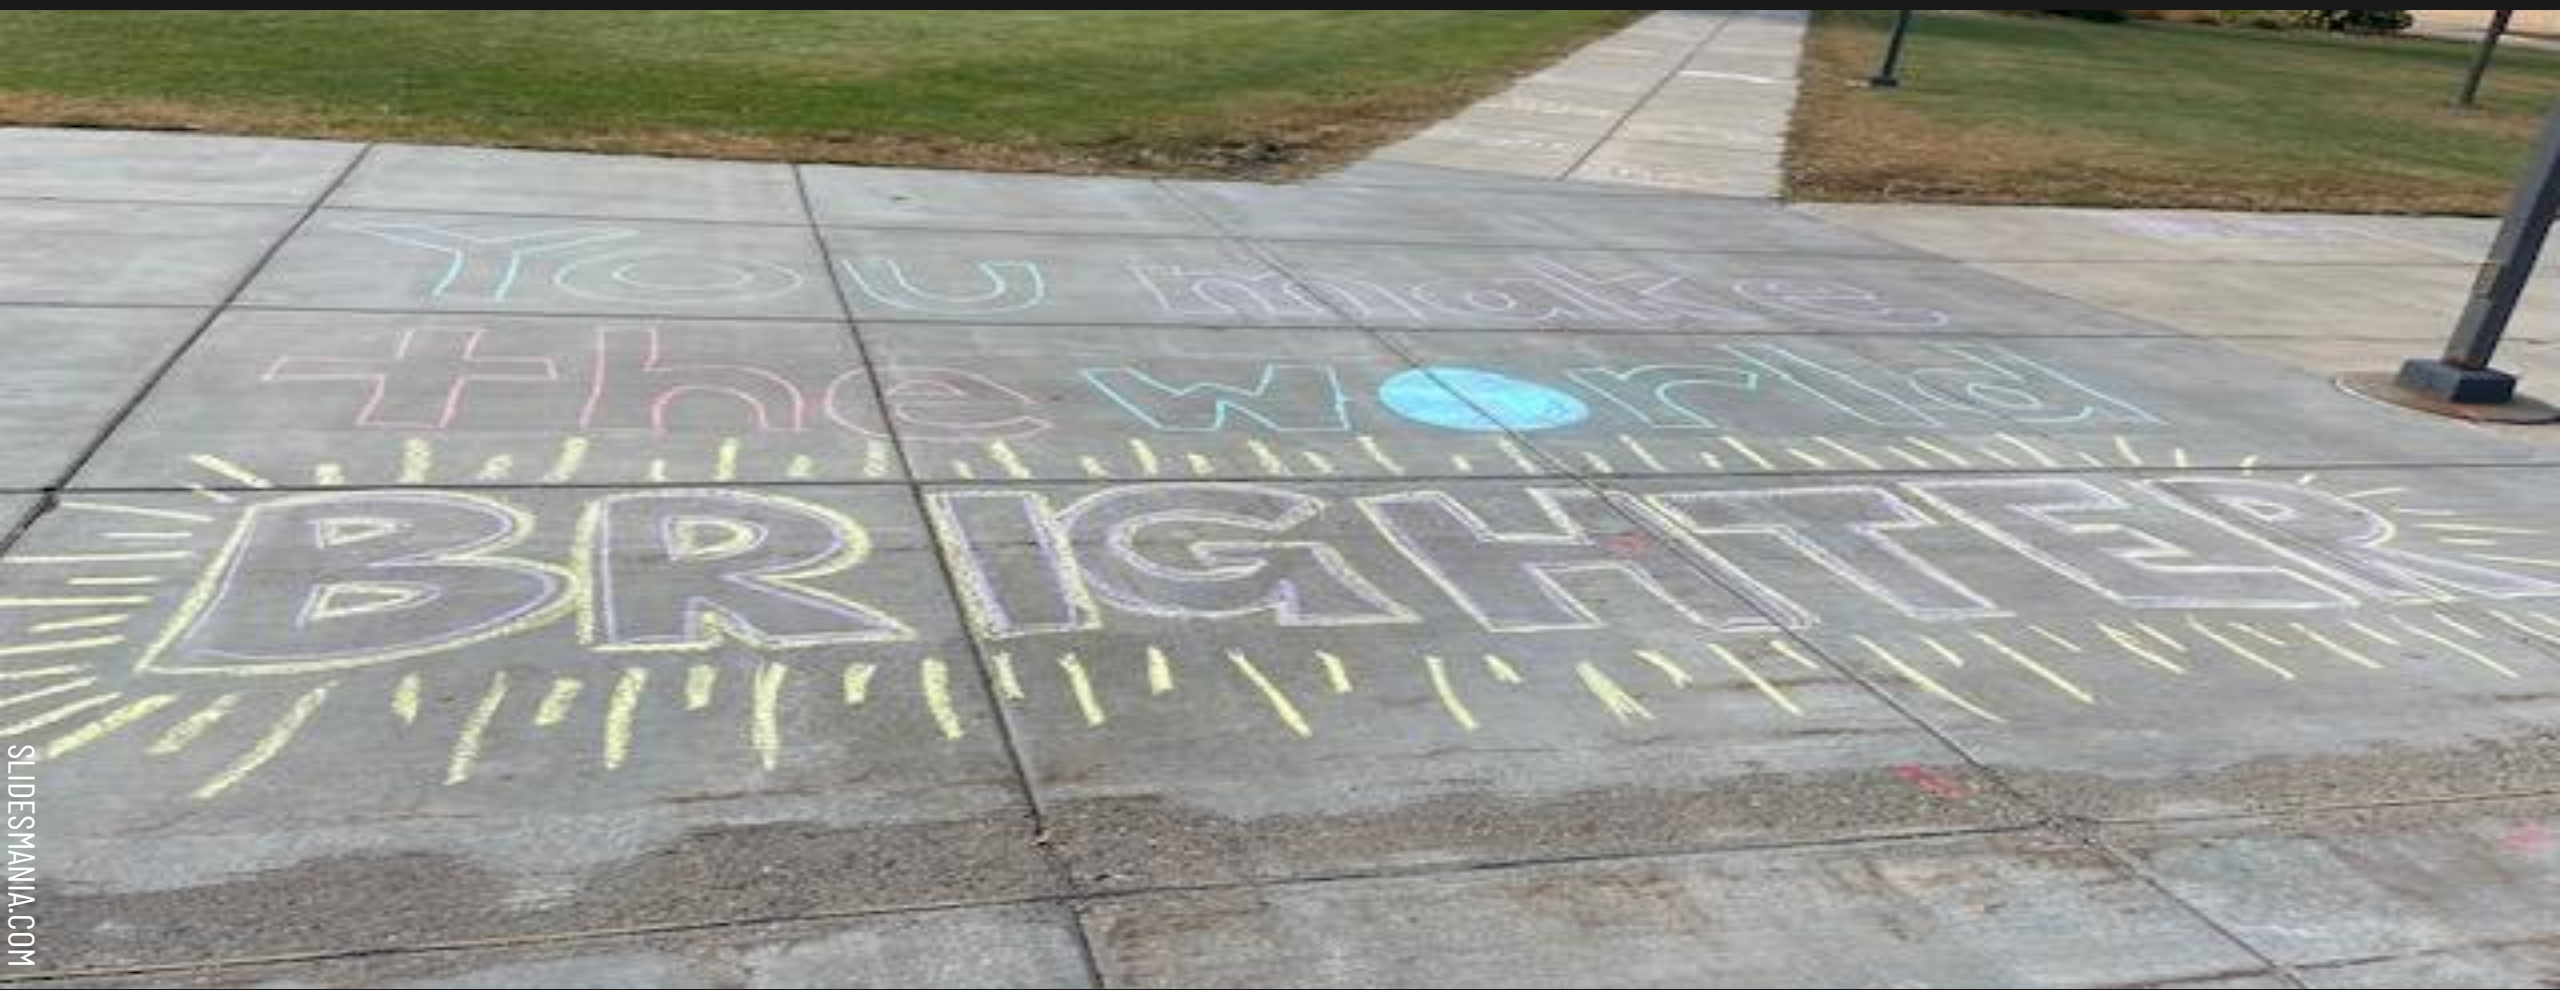 You make
the world
BRIGHTER
SLIDESMANIA.COM